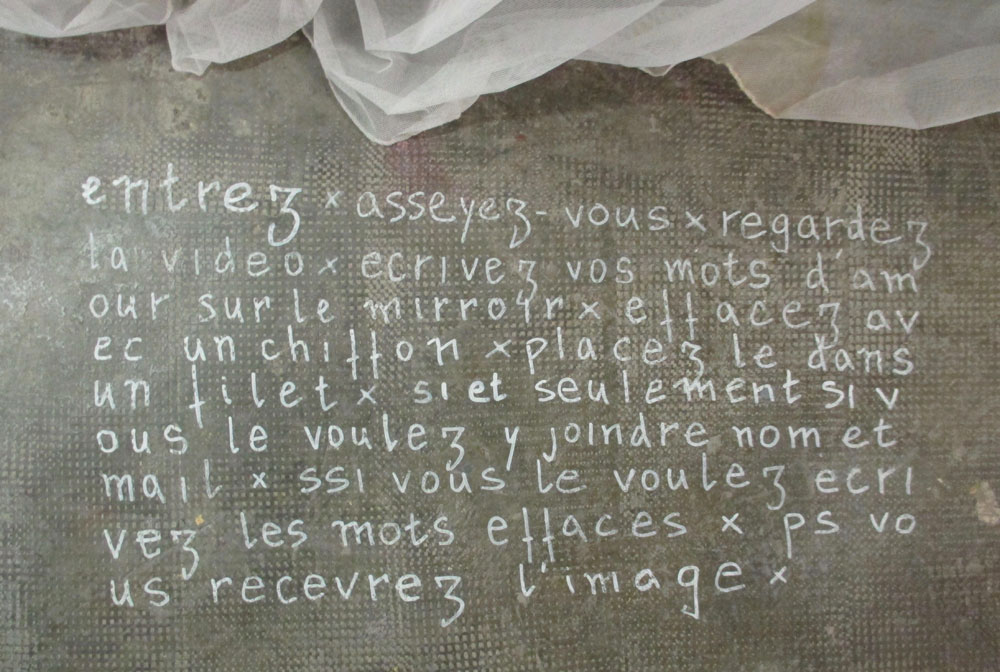 entrez × asseyez-vous × regardez
la video × ecrivez vos mots d'am
our sur le mirroir × effacez av
ec un chiffon × placez le dans
un filet × si et seulement si v
ous le voulez y joindre nom et
mail × ssi vous le voulez ecri
vez les mots effaces × ps vo
us recevrez l'image ×